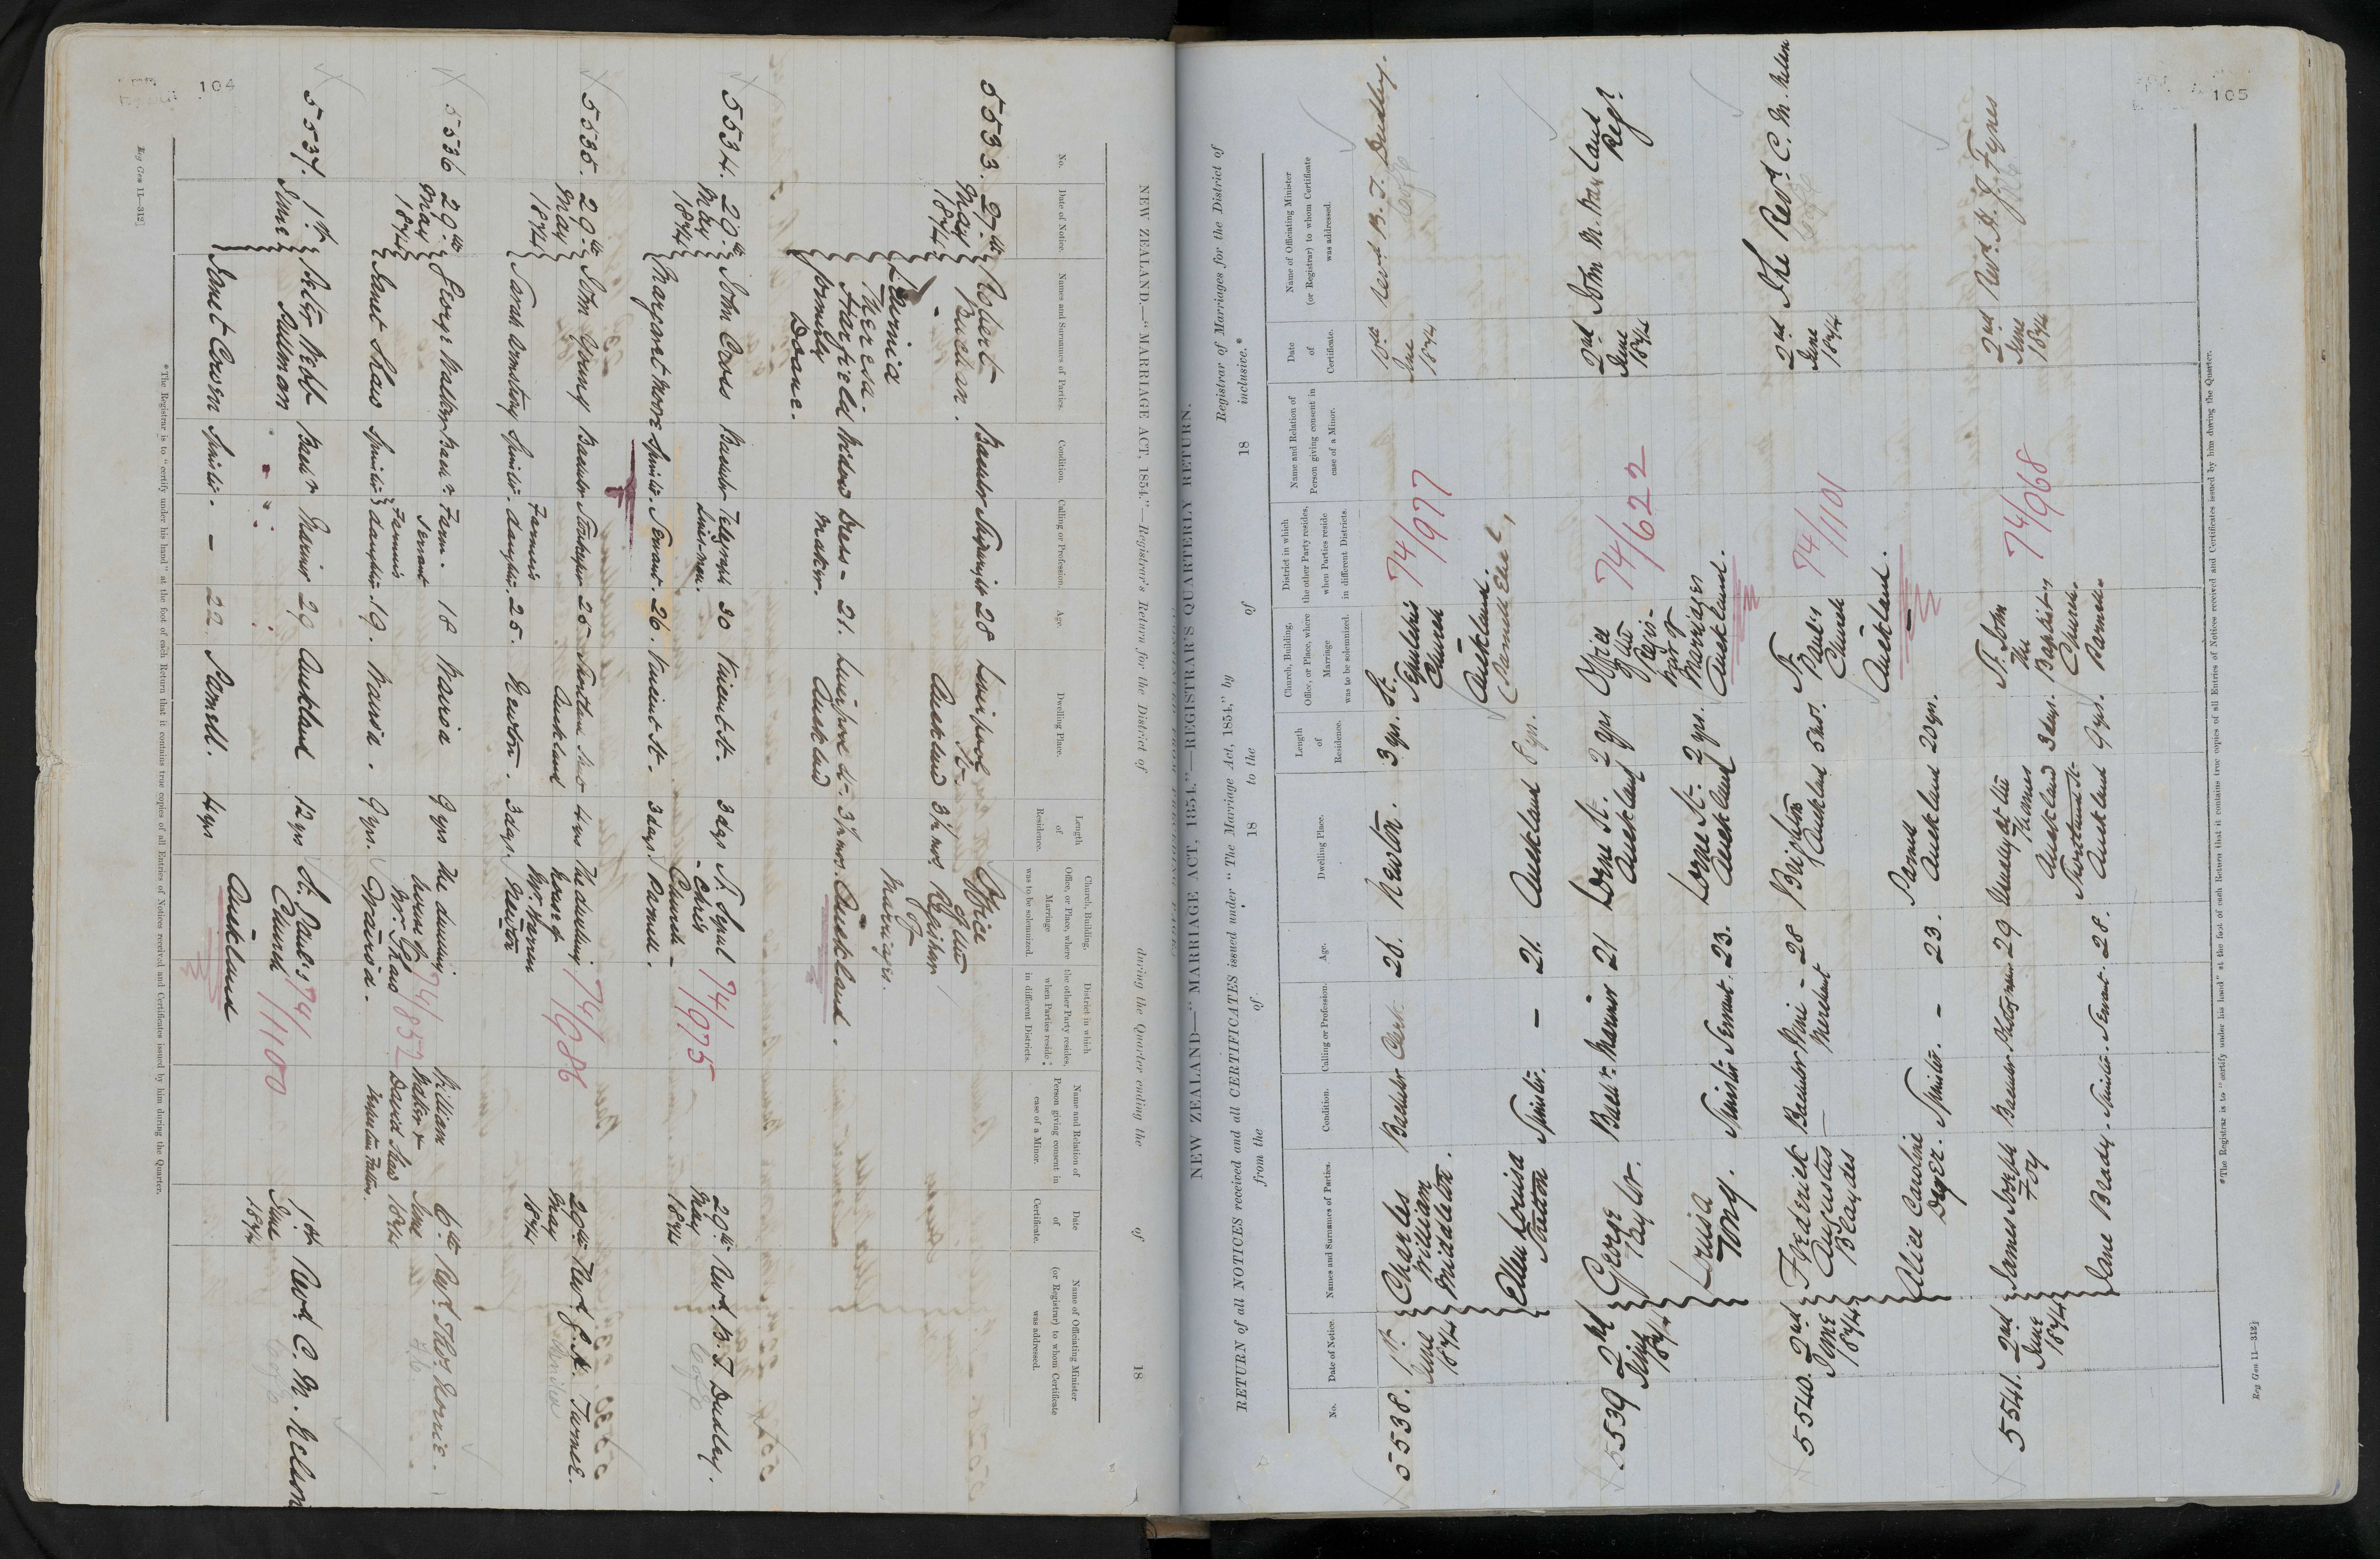 104
NEW ZEALAND.—"MARRIAGE ACT, 1854."—Registrar's Return for the District of during the Quarter ending the of 18
No.
Date of Notice.
Names and Surnames of Parties.
Condition.
Calling or Profession.
Age.
Dwelling Place.
Length
of
Residence.
Church, Building,
Office, or Place, where
Marriage
was to be solemnized.
District in which
the other Party resides,
when Parties reside
in different Districts.
Name and Relation of
Person giving consent in
case of a Minor.
Date
of
Certificate.
Name of Officiating Minister
(or Registrar) to whom Certificate
was addressed.
5533.
27th
May
1874
Robert
Buchan.
Bachelor
28
Liverpool
St.
Auckland
3½ mos.
Office
of the
Registrar
of
Marriages.
Lavinia
Theresa
Harfield
formerly
Doane.
Widow
Dress-
maker.
21.
Liverpool St.
Auckland
3½ mos.
Auckland.
5534.
29th
May
1874
John Cross
Bachelor
Telegraph
Lines-man.
30
Vincent St.
3 days
Church
Parnell.
74/975
29th
May
1874
Revd. B. T. Dudley.
C of E
Margaret Moore
Spinster.
Servant.
26.
Vincent St.
3 days
5535.
29th
May
1874
John Young
Bachelor
Storekeeper
25
Auckland
4 yrs
The dwelling
house of
Newton
74/986
29th
May
1874
Revd. G. A. Turner.
Sarah Armstrong
Spinster.
Farmer's
daughter.
25.
Newton.
3 days.
5536
29th
May
1874
George
Bachr.
Farm.
Servant
18
Wairoa
9 yrs
The dwelling
house of
Mr. Shaw
Wairoa.
74/852
William
David Shaw
6th
June
1874
Revd. Thos. Norrie.
Janet Shaw
Spinster
Farmer's
daughter.
19.
Wairoa.
9 yrs.
5537.
1st
June
Peter Webb
Bachr.
Mariner
29
Auckland
12 yrs
St. Paul's
Church
Auckland
74/1100
1st
June
1874
Revd. C. M. Nelson
C of E
Janet Cowen
Spinster.
—
22
Parnell.
4 yrs
*The Registrar is to "certify under his hand" at the foot of each Return that it contains true copies of all Entries of Notices received and Certificates issued by him during the Quarter.
Reg Gen 11—312]
105
NEW ZEALAND.—"MARRIAGE ACT, 1854."—REGISTRAR'S QUARTERLY RETURN.
RETURN of all NOTICES received and all CERTIFICATES issued under "The Marriage Act, 1854," by Registrar of Marriages for the District of
from the of 18 to the of 18 inclusive.*
No.
Date of Notice.
Names and Surnames of Parties.
Condition.
Calling or Profession.
Age.
Dwelling Place.
Length
of
Residence.
Church, Building,
Office, or Place, where
Marriage
was to be solemnized.
District in which
the other Party resides,
when Parties reside
in different Districts.
Name and Relation of
Person giving consent in
case of a Minor.
Date
of
Certificate.
Name of Officiating Minister
(or Registrar) to whom Certificate
was addressed.
5538.
1st
June
1874
Charles
William
Middleton.
Bachelor
Clerk.
26.
Newton.
3 yrs.
St.
Sepulchre's
Church
Auckland.
74/977
10th
June
1874
Revd. B. T. Dudley.
C of E
Ellen Louisa
Spinster.
—
21.
Auckland
5539
2nd
June
1874
George
Taylor.
Bachr.
Mariner
21
Lorne St.
Auckland
2 yrs
Office
of the
Regis-
trar of
Marriages
Auckland.
74/622
2nd
June
1874
Regr.
Louisa
Tong.
Spinster
Servant.
23.
Lorne St.
Auckland
2 yrs.
5540.
2nd
June
1874
Frederick
Augustus
Blaydes
Bachelor
Wine-
Merchant
28
Auckland
5 mos.
St.
Paul's
Church
Auckland.
74/1101
2nd
June
1874
The Revd. C. M. Nelson
C of E
Alice Caroline
Spinster.
—
23.
Parnell
Auckland
20 yrs.
5541.
2nd
June
1874
James Joseph
Foy
Bachelor
Photographer
29
Usually at the
Thames
Auckland
3 days.
St. John
the
Baptist's
Church.
Parnell
74/968
2nd
June
1874
Revd. H. J. Fynes
Jane Brady.
Spinster.
Servant.
28.
Auckland
9 yrs.
*The Registrar is to "certify under his hand" at the foot of each Return that it contains true copies of all Entries of Notices received and Certificates issued by him during the Quarter.
Reg Gen 11—312]